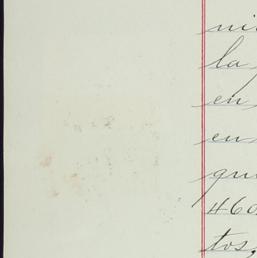 ni
la
en
en
que
460
tos,